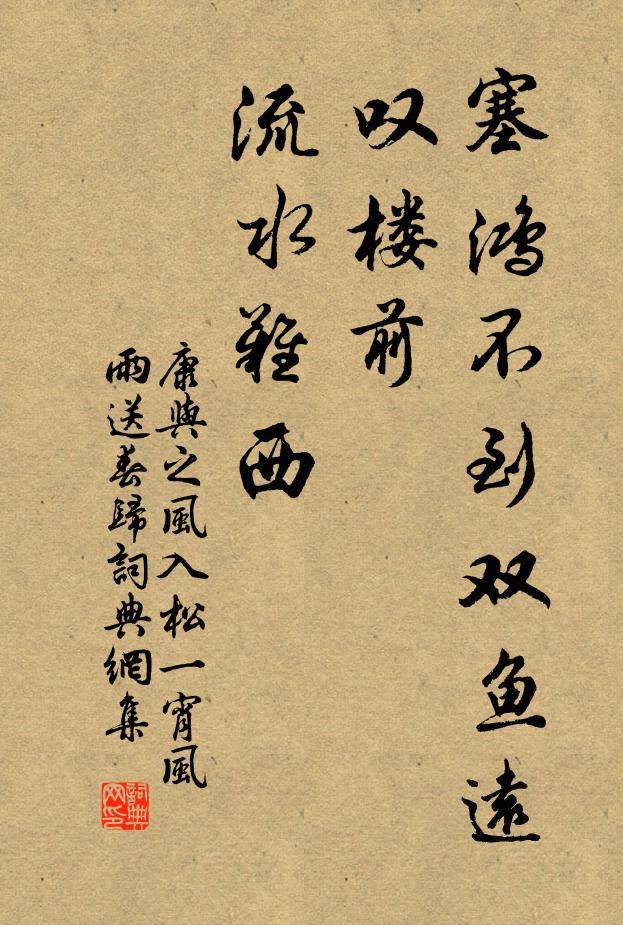 塞鸿不到双鱼遠
叹楼前
流水難西
康與之風入松一宵風
雨送春歸詞典網集
詞典网印